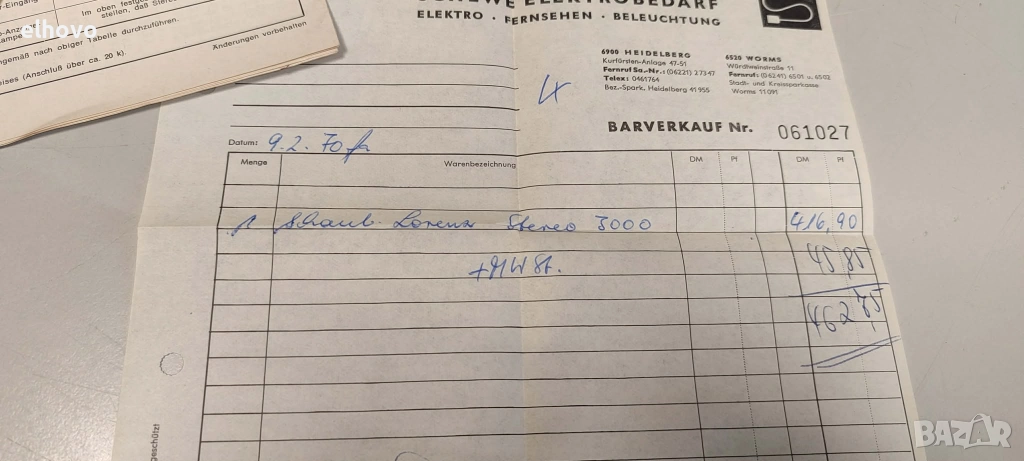 -Eingang
Im oben festge
stellen, daß Stereo
elhovo
ngemäß nach obiger Tabelle durchzuführen.
Änderungen vorbehalten
eises (Anschluß über ca. 20 k).
ELEKTROBEDARF
ELEKTRO · FERNSEHEN · BELEUCHTUNG
6900 HEIDELBERG
Kurfürsten-Anlage 47-51
Fernruf Sa.-Nr.: (06221) 27347
Telex: 0461764
Bez.-Spark. Heidelberg 41 955
6520 WORMS
Würdtweinstraße 11
Fernruf: (06241) 6501 u. 6502
Stadt- und Kreissparkasse
Worms 11 091
BARVERKAUF Nr. 061027
Datum: 9.2.70
Menge Warenbezeichnung DM Pf DM Pf
1 Schaub-Lorenz Stereo 3000 416,90
+ MWSt. 45,85
462,75
geschützt
BAZAR